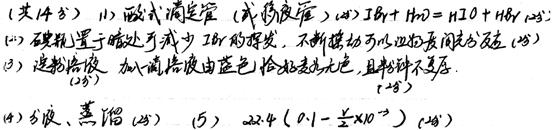 (共14分) (1) 酸式滴定管 (或移液管) (2分) IBr + H₂O = HIO + HBr (2分)
(2) 碘瓶置于暗处可减少 IBr 的挥发,不断摇动可以为反应间充分反应 (2分)
(3) 淀粉溶液 (2分) 加入一滴溶液由蓝色恰好变为无色,且半分钟不复原. (2分)
(4) 分液、蒸馏 (2分) (5) 22.4 (0.1 - V/2 × 10⁻³) (2分)